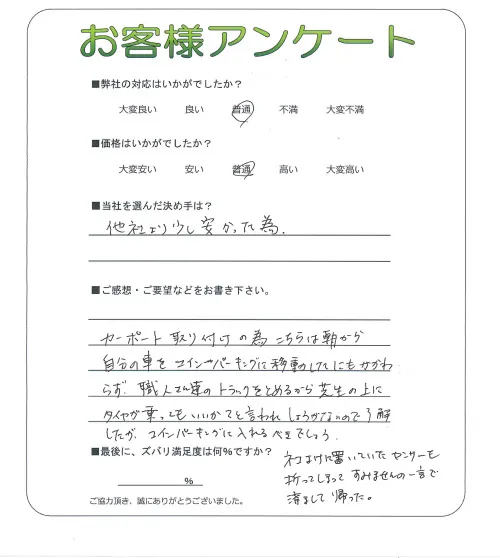 お客様アンケート
■弊社の対応はいかがでしたか?
大変良い 良い 普通 不満 大変不満
■価格はいかがでしたか?
大変安い 安い 普通 高い 大変高い
■当社を選んだ決め手は?
他社より少し安かった為.
■ご感想・ご要望などをお書き下さい。
カーポート取り付けの為こちらは朝から
自分の車をコインパーキングに移動したにもかかわ
らず、職人さん達のトラックをとめるから芝生の上に
タイヤが乗ってもいいかと言われしょうがないので了解
したが、コインパーキングに入れるべきでしょう.
■最後に、ズバリ満足度は何%ですか?
%
ネコよけに置いていたセンサーを
折ってしまってすみませんの一言で
済まして帰った。
ご協力頂き、誠にありがとうございました。